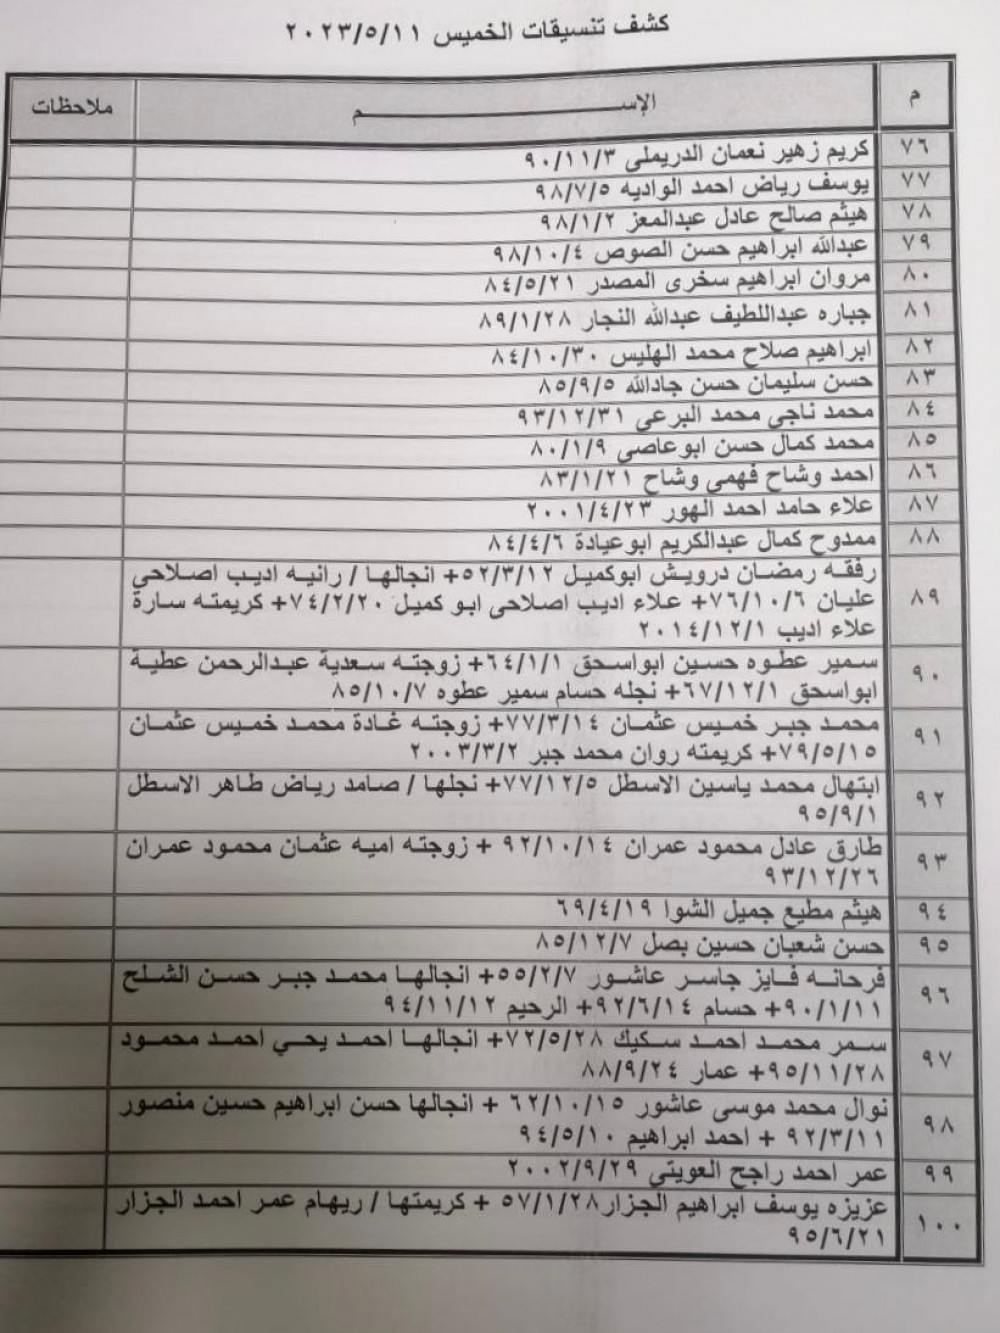 كشف تنسيقات الخميس ٢٠٢٣/٥/١١
م الإســـــم ملاحظات
٧٦ كريم زهير نعمان الدريملي ٩٠/١١/٣
٧٧ يوسف رياض احمد الواديه ٩٨/٧/٥
٧٨ هيثم صالح عادل عبدالمعز ٩٨/١/٢
٧٩ عبدالله ابراهيم حسن الصوص ٩٨/١٠/٤
٨٠ مروان ابراهيم سخرى المصدر ٨٤/٥/٢١
٨١ جباره عبداللطيف عبدالله النجار ٨٩/١/٢٨
٨٢ ابراهيم صلاح محمد الهليس ٨٤/١٠/٣٠
٨٣ حسن سليمان حسن جادالله ٨٥/٩/٥
٨٤ محمد ناجي محمد البرعي ٩٣/١٢/٣١
٨٥ محمد كمال حسن ابوعاصي ٨٠/١/٩
٨٦ احمد وشاح فهمي وشاح ٨٣/١/٢١
٨٧ علاء حامد احمد الهور ٢٠٠١/٤/٢٣
٨٨ ممدوح كمال عبدالكريم ابوعيادة ٨٤/٤/٦
رفقه رمضان درويش ابوكميل ٥٢/٣/١٢+ انجالها / رانيه اديب اصلاحي
٨٩ عليان ٧٦/١٠/٦+ علاء اديب اصلاحى ابو كميل ٧٤/٢/٢٠+ كريمته سارة
علاء اديب ٢٠١٤/١٢/١
٩٠ سمير عطوه حسين ابواسحق ٦٤/١/١+ زوجته سعدية عبدالرحمن عطية
ابواسحق ٦٧/١٢/١+ نجله حسام سمير عطوه ٨٥/١٠/٧
٩١ محمد جبر خميس عثمان ٧٧/٣/١٤+ زوجته غادة محمد خميس عثمان
٧٩/٥/١٥+ كريمته روان محمد جبر ٢٠٠٣/٣/٢
٩٢ ابتهال محمد ياسين الاسطل ٧٧/١٢/٥+ نجلها / صامد رياض طاهر الاسطل
٩٥/٩/١
٩٣ طارق عادل محمود عمران ٩٢/١٠/١٤ + زوجته اميه عثمان محمود عمران
٩٣/١٢/٢٦
٩٤ هيثم مطيع جميل الشوا ٦٩/٤/١٩
٩٥ حسن شعبان حسين بصل ٨٥/١٢/٧
٩٦ فرحانه فايز جاسر عاشور ٥٥/٢/٧+ انجالها محمد جبر حسن الشلح
٩٠/١/١١+ حسام ٩٢/٦/١٤+ الرحيم ٩٤/١١/١٢
٩٧ سمر محمد احمد سكيك ٧٢/٥/٢٨+ انجالها احمد يحي احمد محمود
٩٥/١١/٢٨+ عمار ٨٨/٩/٢٤
٩٨ نوال محمد موسى عاشور ٦٢/١٠/١٥ + انجالها حسن ابراهيم حسين منصور
٩٢/٣/١١ + احمد ابراهيم ٩٤/٥/١٠
٩٩ عمر احمد راجح العويتي ٢٠٠٢/٩/٢٩
١٠٠ عزيزه يوسف ابراهيم الجزار٥٧/١/٢٨ + كريمتها / ريهام عمر احمد الجزار
٩٥/٦/٢١